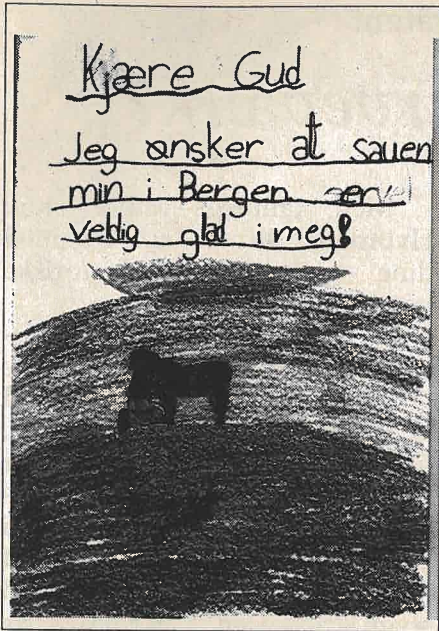 Kjære Gud
Jeg ønsker at sauen
min i Bergen er
veldig glad i meg!